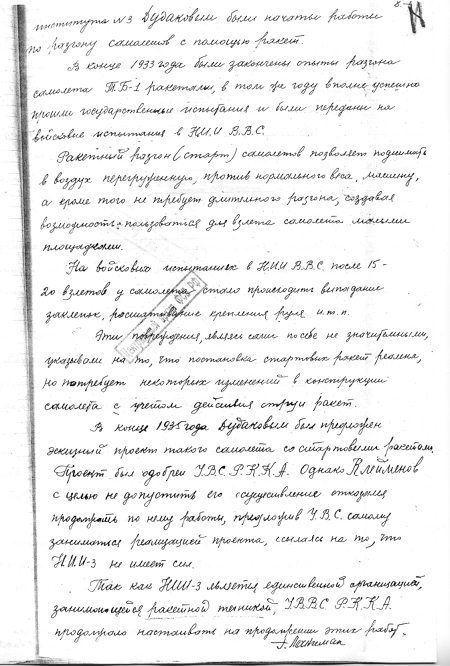 института №3 Дудаковым были начаты работы
по разгону самолетов с помощью ракет.
В конце 1933 года были закончены опыты разгона
самолета Т.Б-1 ракетами, в том же году вполне успешно
прошли государственные испытания и были переданы на
войсковые испытания в Н.И.И В.В.С.
Ракетный разгон (старт) самолетов позволяет поднимать
в воздух перегруженную, против нормального веса, машину,
а кроме того не требует длительного разгона, создавая
возможность пользоваться для взлета самолета малыми
площадками.
На войсковых испытаниях в Н.И.И В.В.С. после 15-
20 взлетов у самолета стало происходить выпадание
заклепок, расшатывание крепления руля и.т.п.
Эти повреждения, являясь сами по себе не значительными,
указывали на то, что постановка стартовых ракет реальна,
но потребует некоторых изменений в конструкции
самолета с учетом действия струи ракет.
В конце 1935 года Дудаковым был предложен
эскизный проект такого самолета со стартовыми ракетами.
Проект был одобрен У.В.С. Р.К.К.А. Однако Клейменов
с целью не допустить его осуществление отказался
продолжать по нему работы, предложив У.В.С. самому
заниматься реализацией проекта, ссылаясь на то, что
Н.И.И-3 не имеет сил.
Так как НИИ-3 является единственной организацией,
занимающейся ракетной техникой, У.В.В.С Р.К.К.А.
продолжало настаивать на продолжении этих работ.